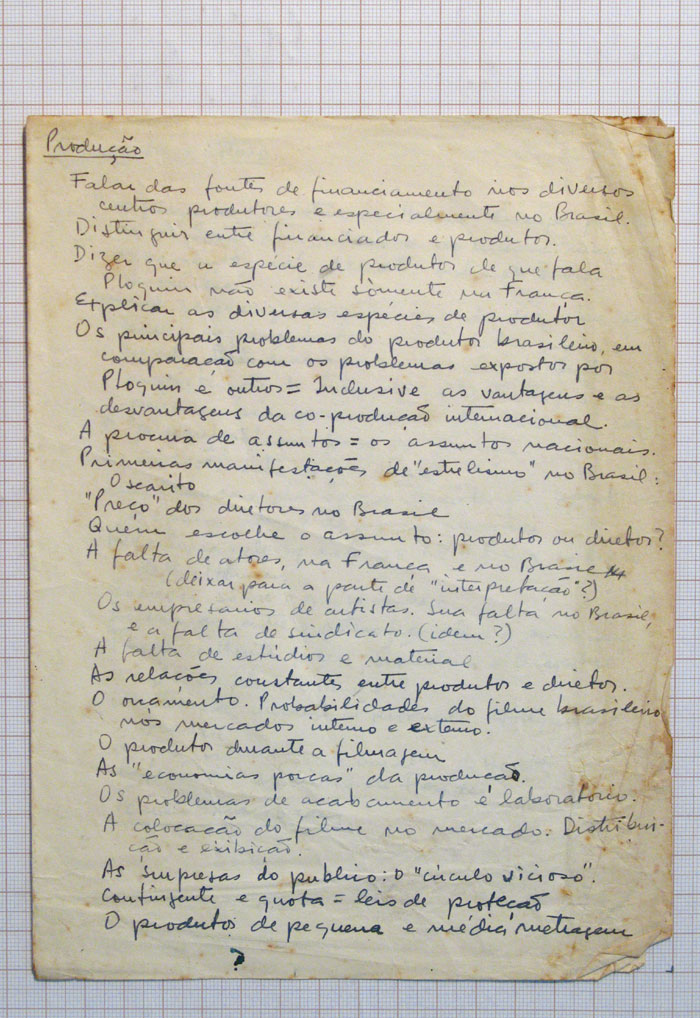 Produção
Falar das fontes de financiamento nos diversos
centros produtores e especialmente no Brasil.
Distinguir entre financiador e produtor.
Dizer que a espécie de produtor de que fala
Ploquin não existe sòmente na França.
Explicar as diversas espécies de produtor
Os principais problemas do produtor brasileiro, em
comparação com os problemas expostos por
Ploquin e outros = Inclusive as vantagens e as
desvantagens da co-produção internacional.
A procura de assuntos = os assuntos nacionais.
Primeiras manifestações de "estrelismo" no Brasil:
Oscarito
"Preço" dos diretores no Brasil
Quem escolhe o assunto: produtor ou diretor?
A falta de atores, na França e no Brasil
(deixar para a parte de "interpretação"?)
Os empresarios de artistas. Sua falta no Brasil,
e a falta de sindicato. (idem?)
A falta de estúdios e material
As relações constantes entre produtor e diretor.
O orçamento. Probabilidades do filme brasileiro
nos mercados interno e externo.
O produtor durante a filmagem
As "economias porcas" da produção.
Os problemas de acabamento e laboratorio.
A colocação do filme no mercado. Distribui-
ção e exibição.
As surpresas do publico: o "circulo vicioso".
Contingente e quota = leis de proteção
O produtor de pequena e média metragem
?